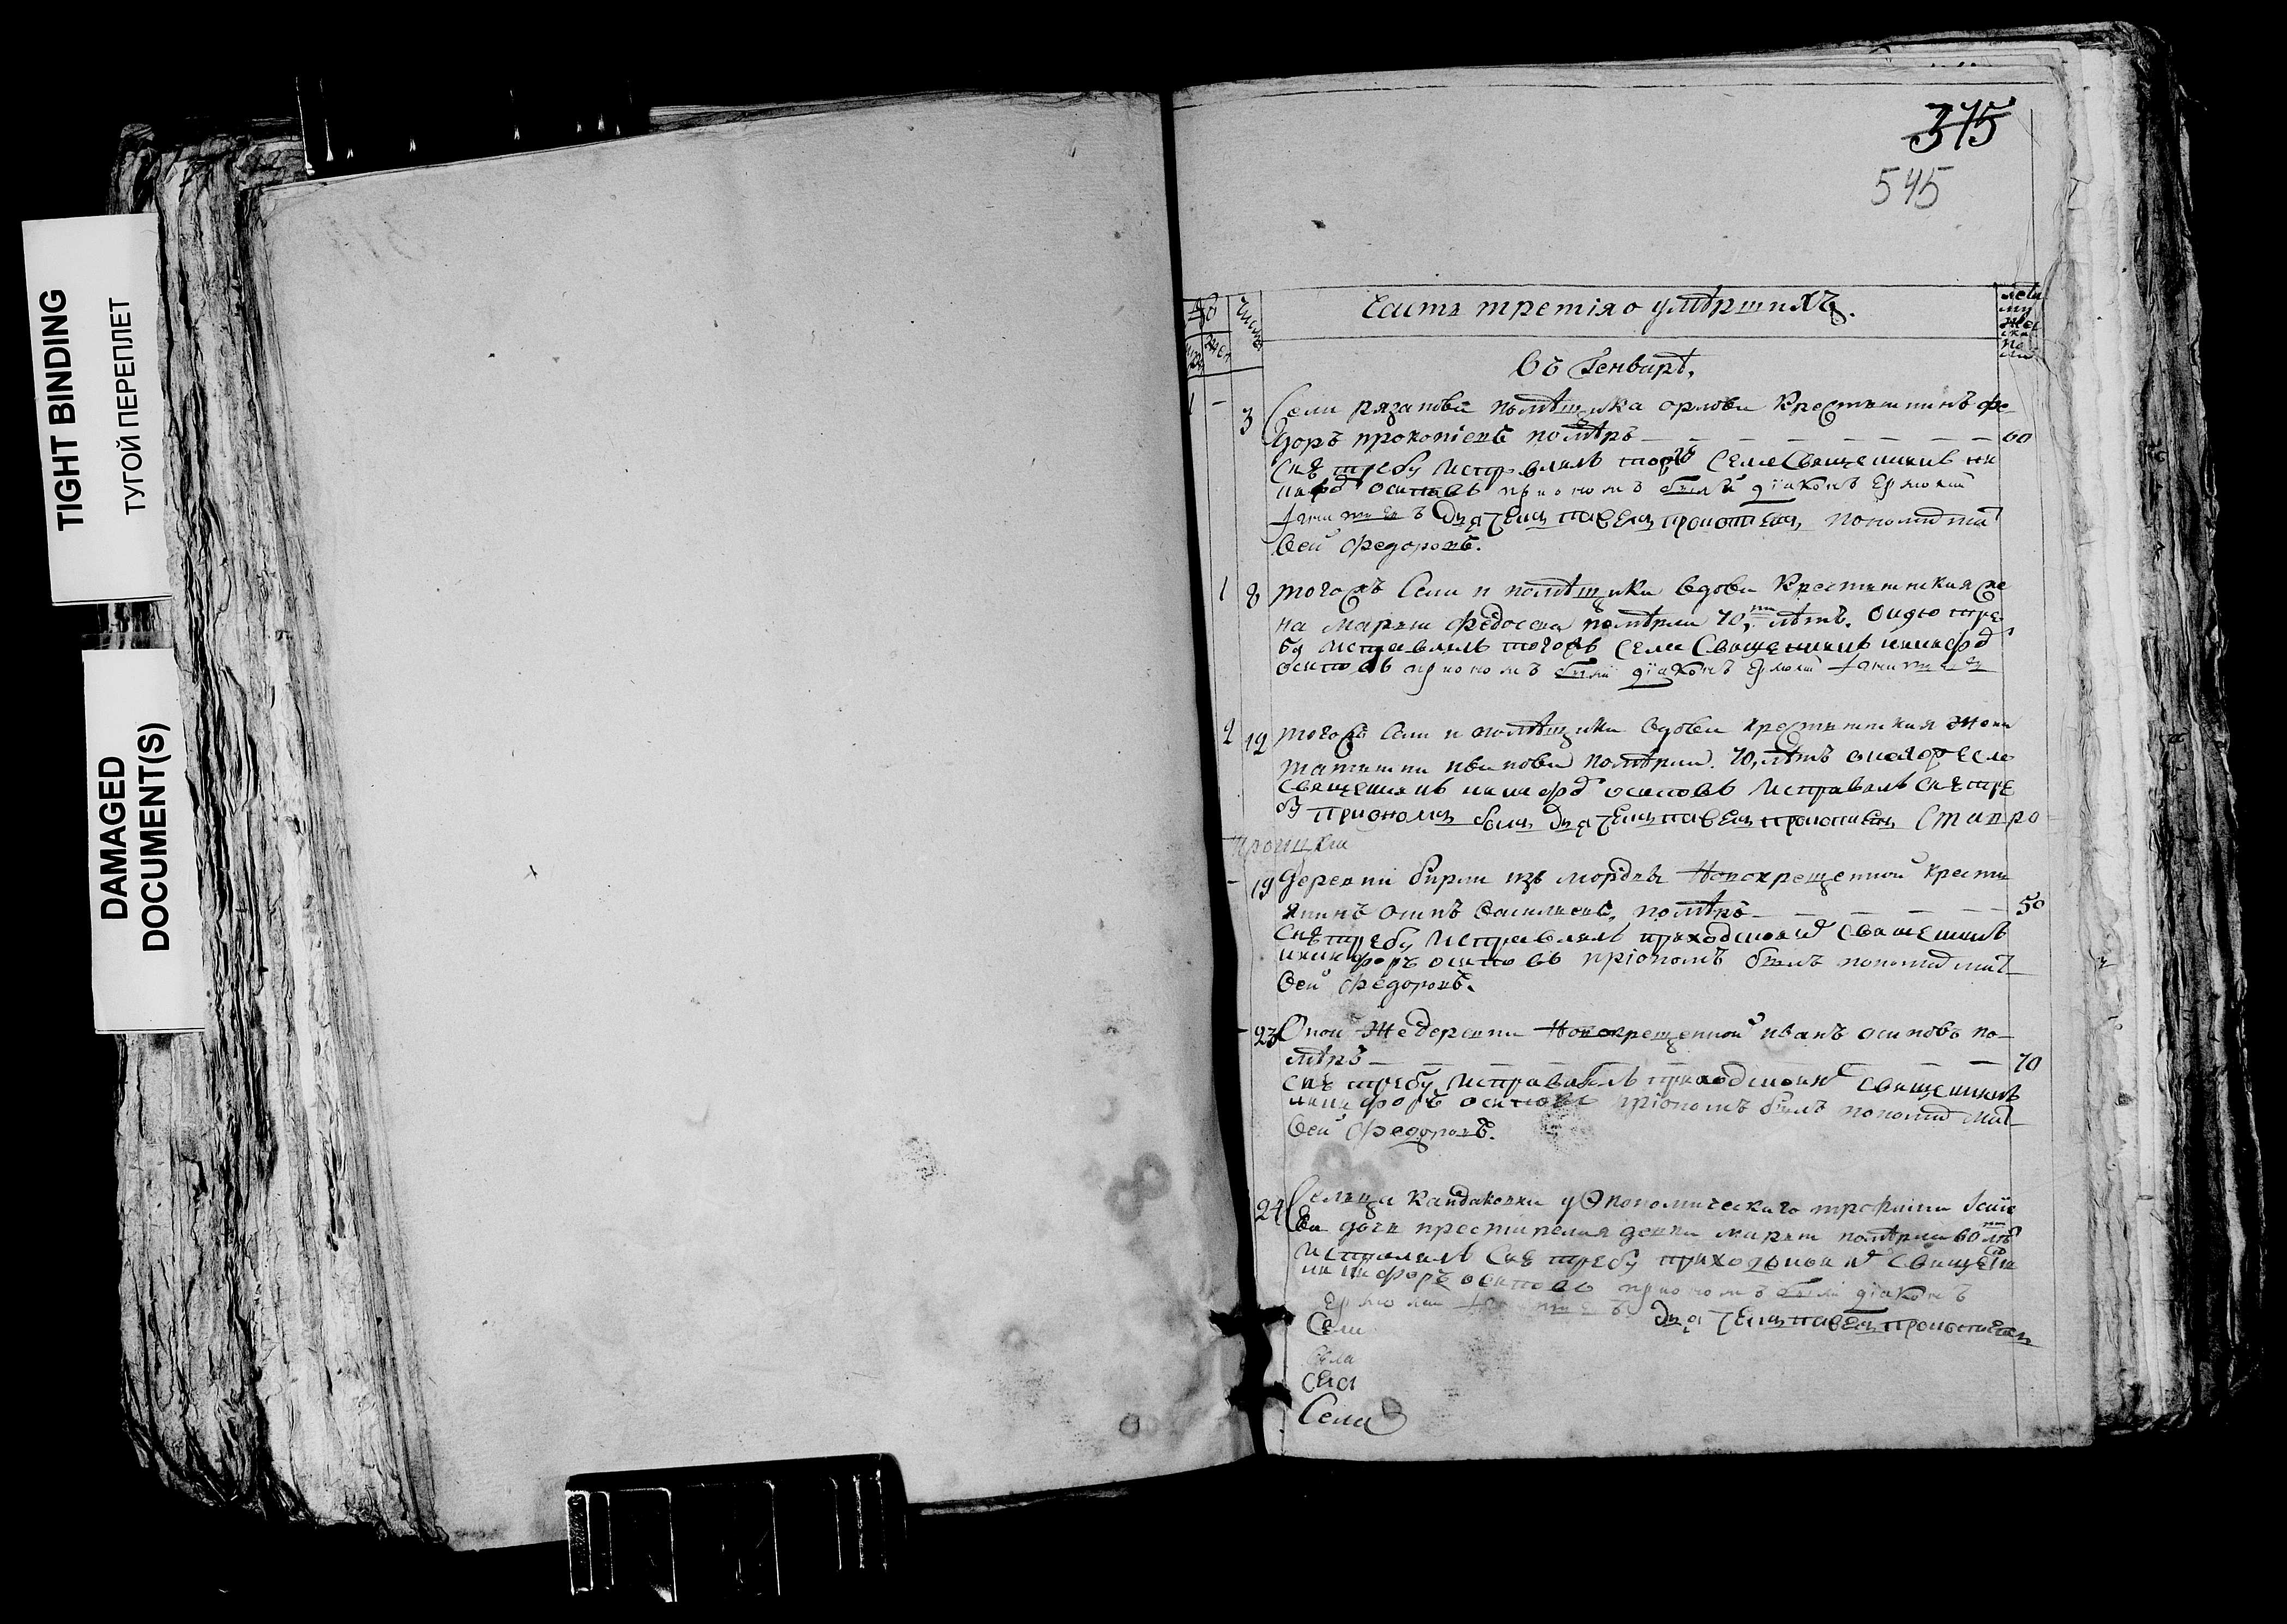 TIGHT BINDING
ТУГОЙ ПЕРЕПЛЕТ
DAMAGED
DOCUMENT(S)
375
545
Часть третія о умѣршихъ.
Въ Генварѣ.
1 - 3 Села рязанова помѣщика орлова Крестьянинъ фе
доръ прокопіевъ помѣръ 60
сию требу исправлялъ тогожъ села Священникъ ни
кифоръ осиповъ приономъ были діаконъ Ермолай
дьячекъ павелъ прокопиевъ пономарь мат
вей федоровъ.
1 8 тогожъ Села и помѣщика вдова Крестьянская же
на марья федосева помѣрла 70, лѣтъ. Оидю тре
бу исправлялъ тогожъ села Священникъ никифоръ
осиповъ приономъ были діаконъ Ермолай
2 12 тогожъ Села и помѣщика вдова крестьянская жена
татьяна иванова помѣрла. 70, лѣтъ оногоже села
Священникъ никифоръ осиповъ исправлялъ сию тре
бу приономъ былъ дьячекъ павелъ прокопиевъ Старо
троицкаи
- 19 деревни бирли изъ мордвы Новокрещенной крестья
янинъ осипъ Васильевъ, помѣръ 50
сию требу исправлялъ приходской священникъ
никифоръ осиповъ пріономъ былъ пономарь мат
вей федоровъ.
- 23 Оной же деревни Новокрещенной иванъ осиповъ по
мѣръ 70
сию требу исправлялъ приходской священникъ
никифоръ осиповъ пріономъ былъ пономарь мат
вей федоровъ.
24 Сельца Кандаковки у Экономическаго трофима Исае
ва дочь престарелая девка марья помѣрла 60 лѣ
исправлялъ сию требу приходской священ
никифоръ осиповъ приономъ были діаконъ
Ермолай дьячекъ павелъ прокопиевъ
Села
Села
Села
Села